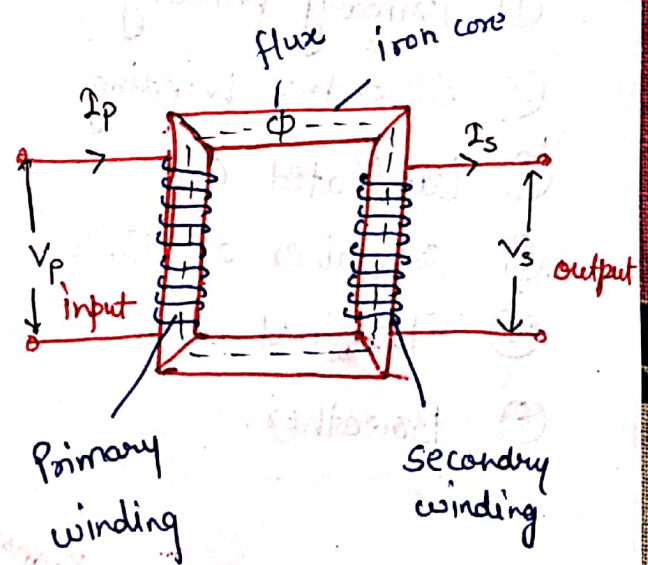 flux
iron core
Ip
Φ
Is
Vp
input
Vs
output
Primary
winding
Secondry
winding